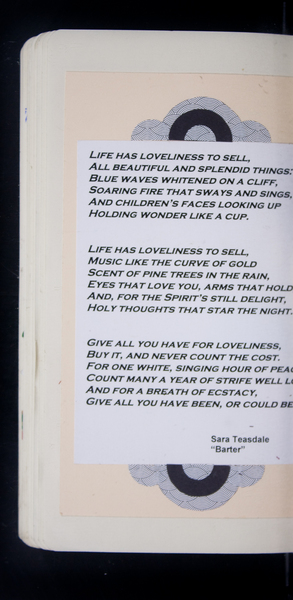 Life has loveliness to sell,
All beautiful and splendid things:
Blue waves whitened on a cliff,
Soaring fire that sways and sings,
And children's faces looking up
Holding wonder like a cup.
Life has loveliness to sell,
Music like the curve of gold
Scent of pine trees in the rain,
Eyes that love you, arms that hold
And, for the Spirit's still delight,
Holy thoughts that star the night.
Give all you have for loveliness,
Buy it, and never count the cost.
For one white, singing hour of peac
Count many a year of strife well lo
And for a breath of ecstacy,
Give all you have been, or could be
Sara Teasdale
"Barter"